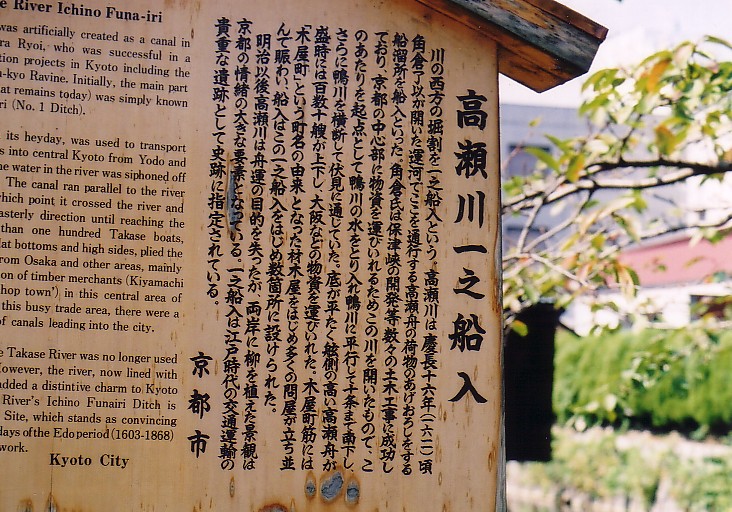 e River Ichino Funa-iri
was artificially created as a canal in
ra Ryoi, who was successful in a
tion projects in Kyoto including the
-kyo Ravine. Initially, the main part
at remains today) was simply known
ri (No. 1 Ditch).
its heyday, was used to transport
s into central Kyoto from Yodo and
he water in the river was siphoned off
The canal ran parallel to the river
hich point it crossed the river and
asterly direction until reaching the
than one hundred Takase boats,
at bottoms and high sides, plied the
from Osaka and other areas, mainly
on of timber merchants (Kiyamachi
hop town') in this central area of
this busy trade area, there were a
f canals leading into the city.
e Takase River was no longer used
owever, the river, now lined with
added a distinctive charm to Kyoto
River's Ichino Funairi Ditch is
Site, which stands as convincing
days of the Edo period (1603-1868)
work.
Kyoto City
高瀬川一之船入
川の西方の堀割を一之船入という。高瀬川は慶長十六年(一六一一)頃
角倉了以が開いた運河でここを通行する高瀬舟の荷物のあげおろしをする
船溜所を船入といった。角倉氏は保津峡の開発等数々の土木工事に成功し
ており、京都の中心部に物資を運びいれるためこの川を開いたもので、こ
のあたりを起点として鴨川の水をとり入れ鴨川に平行して十条まで南下し、
さらに鴨川を横断して伏見に通じていた。底が平たく舷側の高い高瀬舟が
盛時には百数十艘が上下し、大阪などの物資を運びいれた。木屋町筋には
「木屋町」という町名の由来となった材木屋をはじめ多くの問屋が立ち並
んで賑わい、船入はこの一之船入をはじめ数箇所に設けられた。
明治以後高瀬川は舟運の目的を失ったが、両岸に柳を植えた景観は
京都の情緒の大きな要素となっている。一之船入は江戸時代の交通運輸の
貴重な遺跡として史跡に指定されている。
京都市